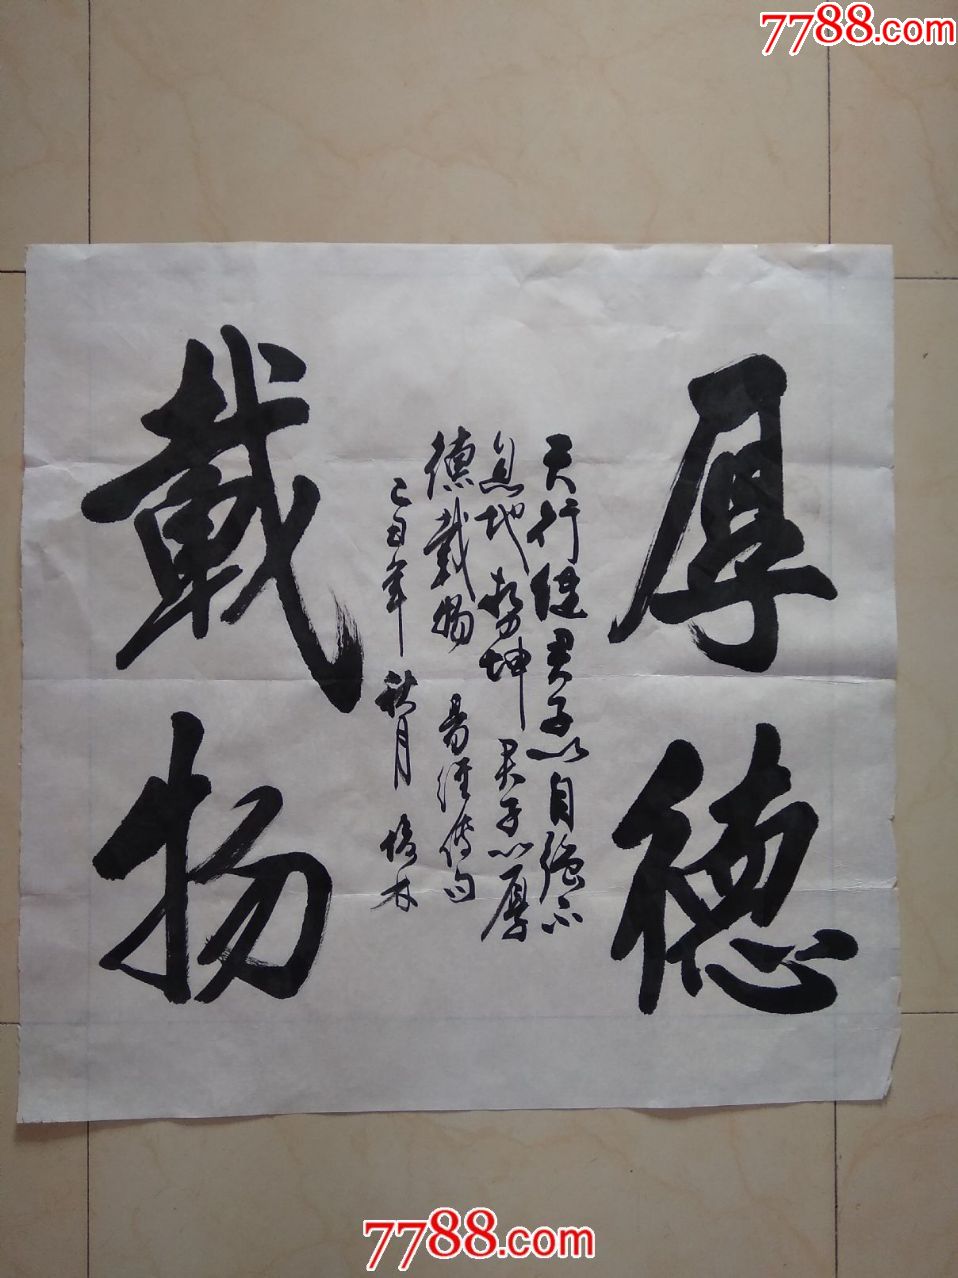 7788.com
厚德
天行健君子以自强不
息地势坤君子以厚
德載物 易经传句
己丑年 秋月
載物
7788.com